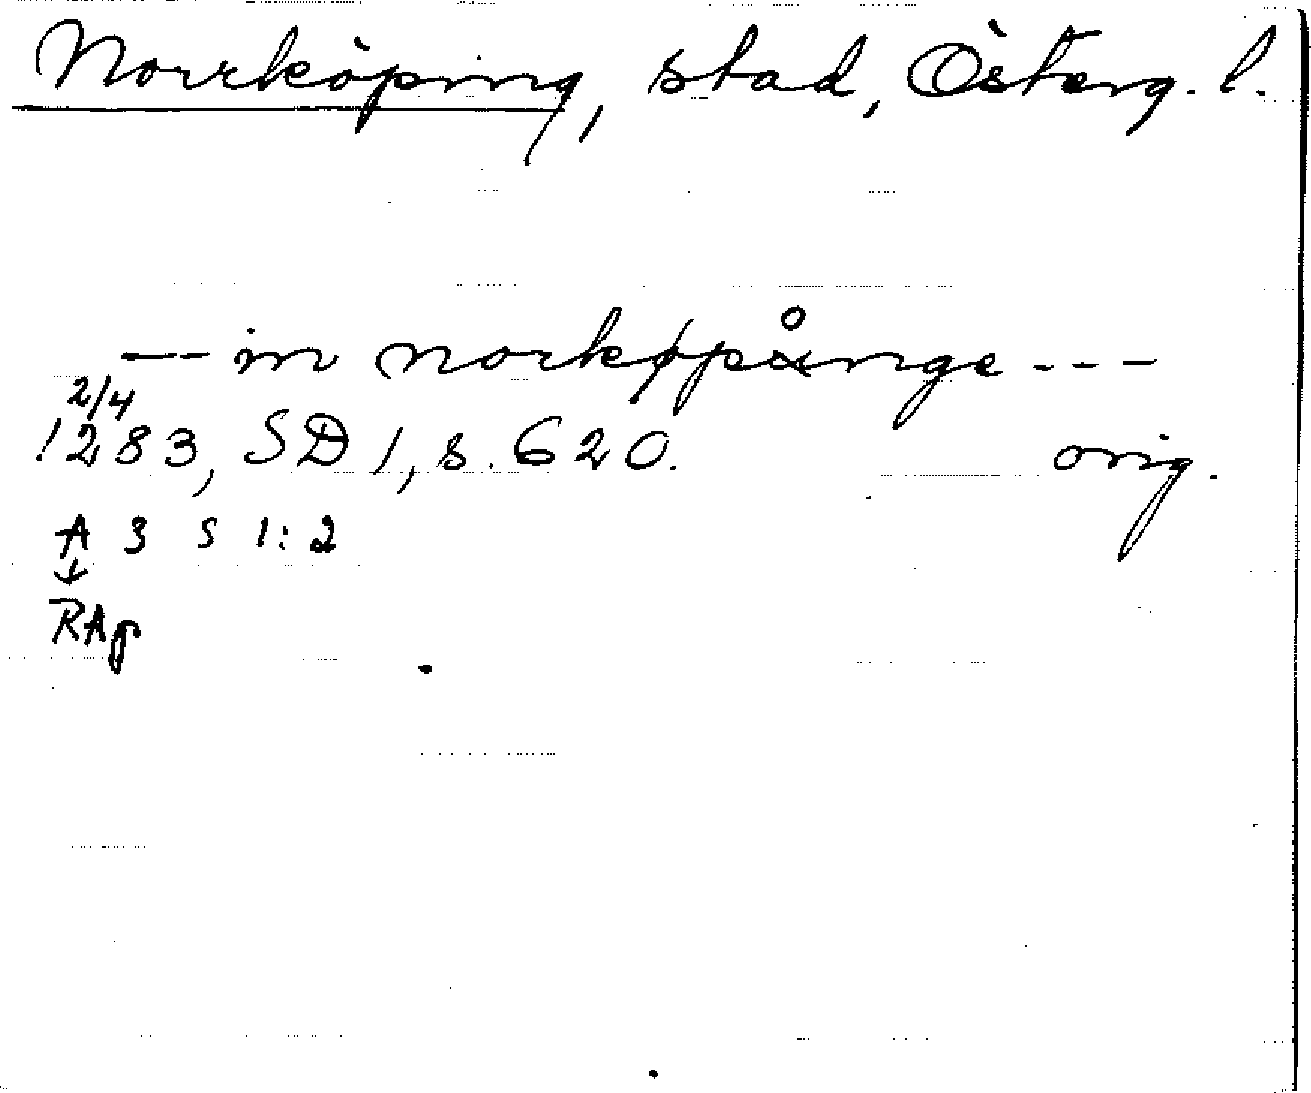 Norrköping, stad, Österg. l.
-- in norkøpånge ---
2/4
1283, SD 1, s. 620. orig.
A 3 S 1:2
↓
RAp